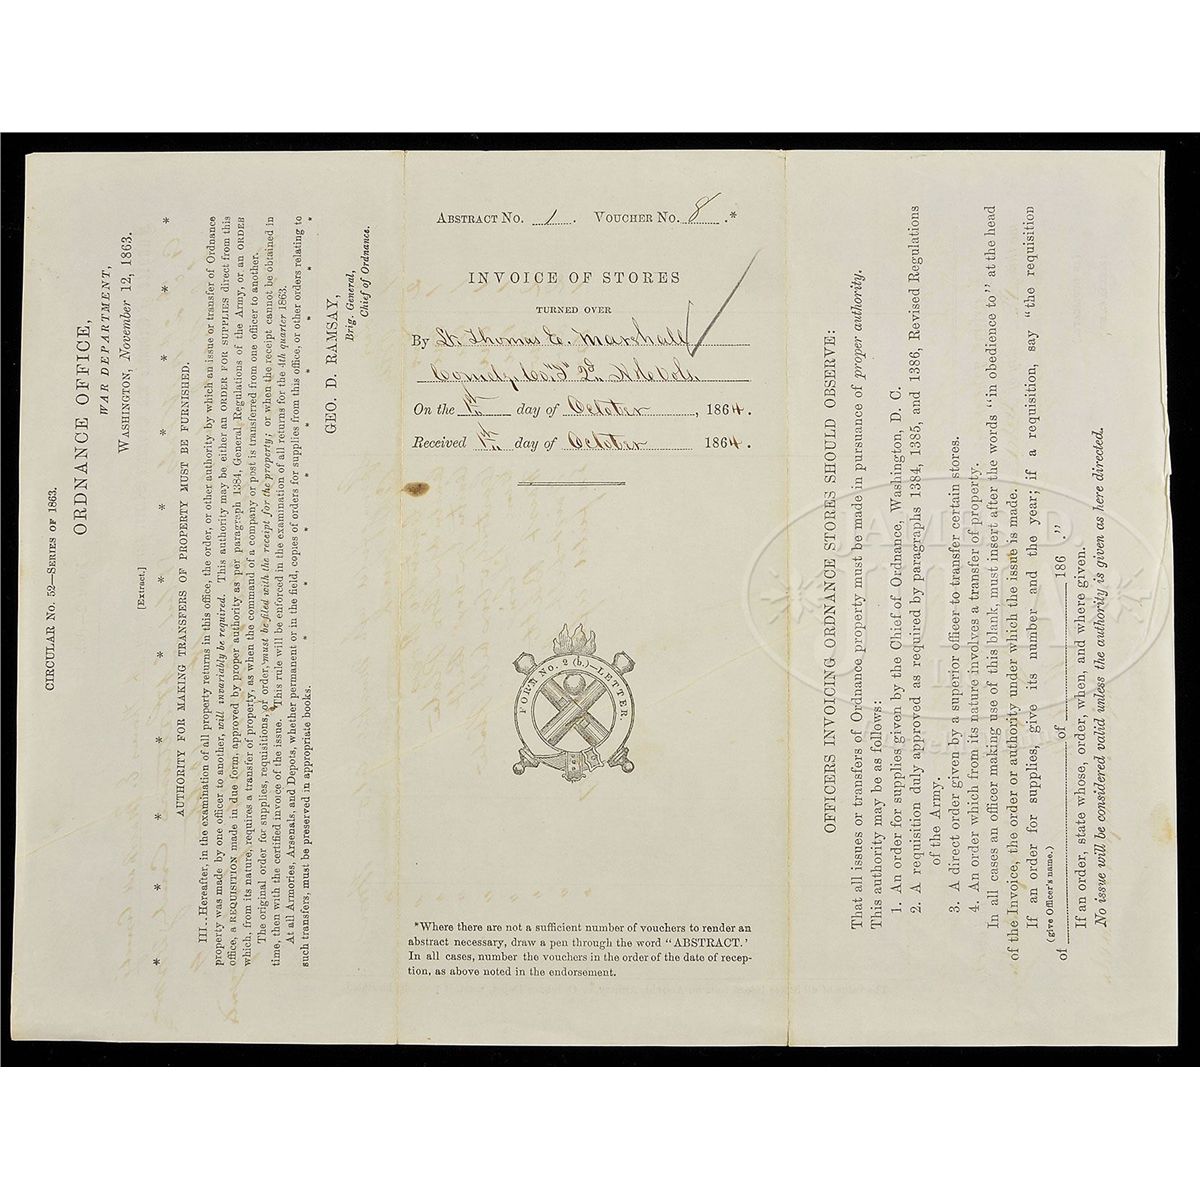 CIRCULAR No. 52—SERIES OF 1863.
ORDNANCE OFFICE,
WAR DEPARTMENT,
WASHINGTON, November 12, 1863.
[Extract.]
* * * * * * * * * *
AUTHORITY FOR MAKING TRANSFERS OF PROPERTY MUST BE FURNISHED.
III.. Hereafter, in the examination of all property returns in this office, the order, or other authority by which an issue or transfer of Ordnance
property was made by one officer to another, will invariably be required. This authority may be either an ORDER FOR SUPPLIES direct from this
office, a REQUISITION made in due form, approved by proper authority as per paragraph 1384, General Regulations of the Army, or an ORDER
which, from its nature, requires a transfer of property, as when the command of a company or post is transferred from one officer to another.
The original order for supplies, requisitions, or order, must be filed with the receipt for the property; or when the receipt cannot be obtained in
time, then with the certified invoice of the issue. This rule will be enforced in the examination of all returns for the 4th quarter 1863.
At all Armories, Arsenals, and Depots, whether permanent or in the field, copies of orders for supplies from this office, or other orders relating to
such transfers, must be preserved in appropriate books.
* * * * * * *
GEO. D. RAMSAY,
Brig. General,
Chief of Ordnance.
ABSTRACT No. 1. VOUCHER No. 8.*
INVOICE OF STORES
TURNED OVER
By Lt. Thomas E. Marshall
Comdg. Co. "F" 2d N Vols.
On the 1st day of October, 1864.
Received 1st day of October 1864.
FORM No. 2 (b.)—LETTER
*Where there are not a sufficient number of vouchers to render an
abstract necessary, draw a pen through the word "ABSTRACT.'
In all cases, number the vouchers in the order of the date of recep-
tion, as above noted in the endorsement.
OFFICERS INVOICING ORDNANCE STORES SHOULD OBSERVE:
That all issues or transfers of Ordnance property must be made in pursuance of proper authority.
This authority may be as follows:
1. An order for supplies given by the Chief of Ordnance, Washington, D. C.
2. A requisition duly approved as required by paragraphs 1384, 1385, and 1386, Revised Regulations
of the Army.
3. A direct order given by a superior officer to transfer certain stores.
4. An order which from its nature involves a transfer of property.
In all cases an officer making use of this blank, must insert after the words "in obedience to" at the head
of the Invoice, the order or authority under which the issue is made.
If an order for supplies, give its number and the year; if a requisition, say "the requisition
(give Officer's name.)
of of 186 ."
If an order, state whose, order, when, and where given.
No issue will be considered valid unless the authority is given as here directed.
JAMES D.